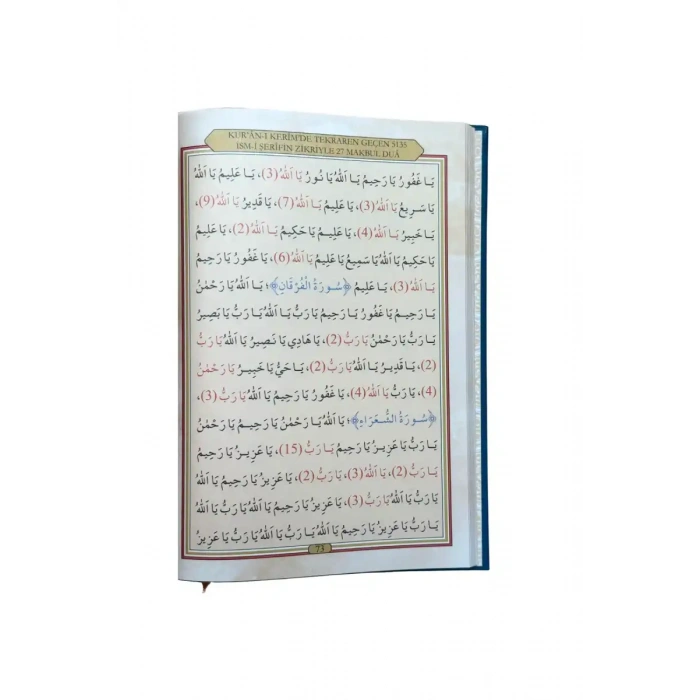 KUR'ÂN-I KERÎM'DE TEKRAREN GEÇEN 5135
ISM-İ ŞERÎFİN ZİKRİYLE 27 MAKBUL DUÂ
يَا غَفُورُ يَا رَحِيمُ يَا اَللهُ يَا نُورُ يَا اَللهُ (3)، يَا عَلِيمُ يَا اَللهُ
يَا سَرِيعُ يَا اَللهُ (3)، يَا عَلِيمُ يَا اَللهُ (7)، يَا قَدِيرُ يَا اَللهُ (9)،
يَا خَبِيرُ يَا اَللهُ (4)، يَا عَلِيمُ يَا حَكِيمُ يَا اَللهُ (2)، يَا عَلِيمُ
يَا حَكِيمُ يَا اَللهُ يَا سَمِيعُ يَا عَلِيمُ يَا اَللهُ (6)، يَا غَفُورُ يَا رَحِيمُ
يَا اَللهُ (3)، يَا عَلِيمُ ﴿سُورَةُ الْفُرْقَانِ﴾؛ يَا اَللهُ يَا رَحْمٰنُ
يَا رَحِيمُ يَا غَفُورُ يَا رَحِيمُ يَا رَبُّ يَا اَللهُ يَا رَبُّ يَا بَصِيرُ
يَا رَبُّ يَا رَحْمٰنُ يَا رَبُّ (2)، يَا هَادِي يَا نَصِيرُ يَا اَللهُ يَا رَبُّ
(2)، يَا قَدِيرُ يَا اَللهُ يَا رَبُّ (2)، يَا حَيُّ يَا خَبِيرُ يَا رَحْمٰنُ
(4)، يَا رَبُّ يَا اَللهُ (4)، يَا غَفُورُ يَا رَحِيمُ يَا اَللهُ يَا رَبُّ (3)،
﴿سُورَةُ الشُّعَرَاءِ﴾؛ يَا اَللهُ يَا رَحْمٰنُ يَا رَحِيمُ يَا رَحْمٰنُ
يَا رَبُّ يَا عَزِيزُ يَا رَحِيمُ يَا رَبُّ (15)، يَا عَزِيزُ يَا رَحِيمُ
يَا رَبُّ (2)، يَا اَللهُ (3)، يَا رَبُّ (2)، يَا عَزِيزُ يَا رَحِيمُ يَا اَللهُ
يَا رَبُّ يَا اَللهُ يَا رَبُّ (3)، يَا عَزِيزُ يَا رَحِيمُ يَا اَللهُ يَا رَبُّ يَا اَللهُ
يَا رَبُّ يَا عَزِيزُ يَا رَحِيمُ يَا اَللهُ يَا رَبُّ يَا اَللهُ يَا رَبُّ يَا عَزِيزُ
73